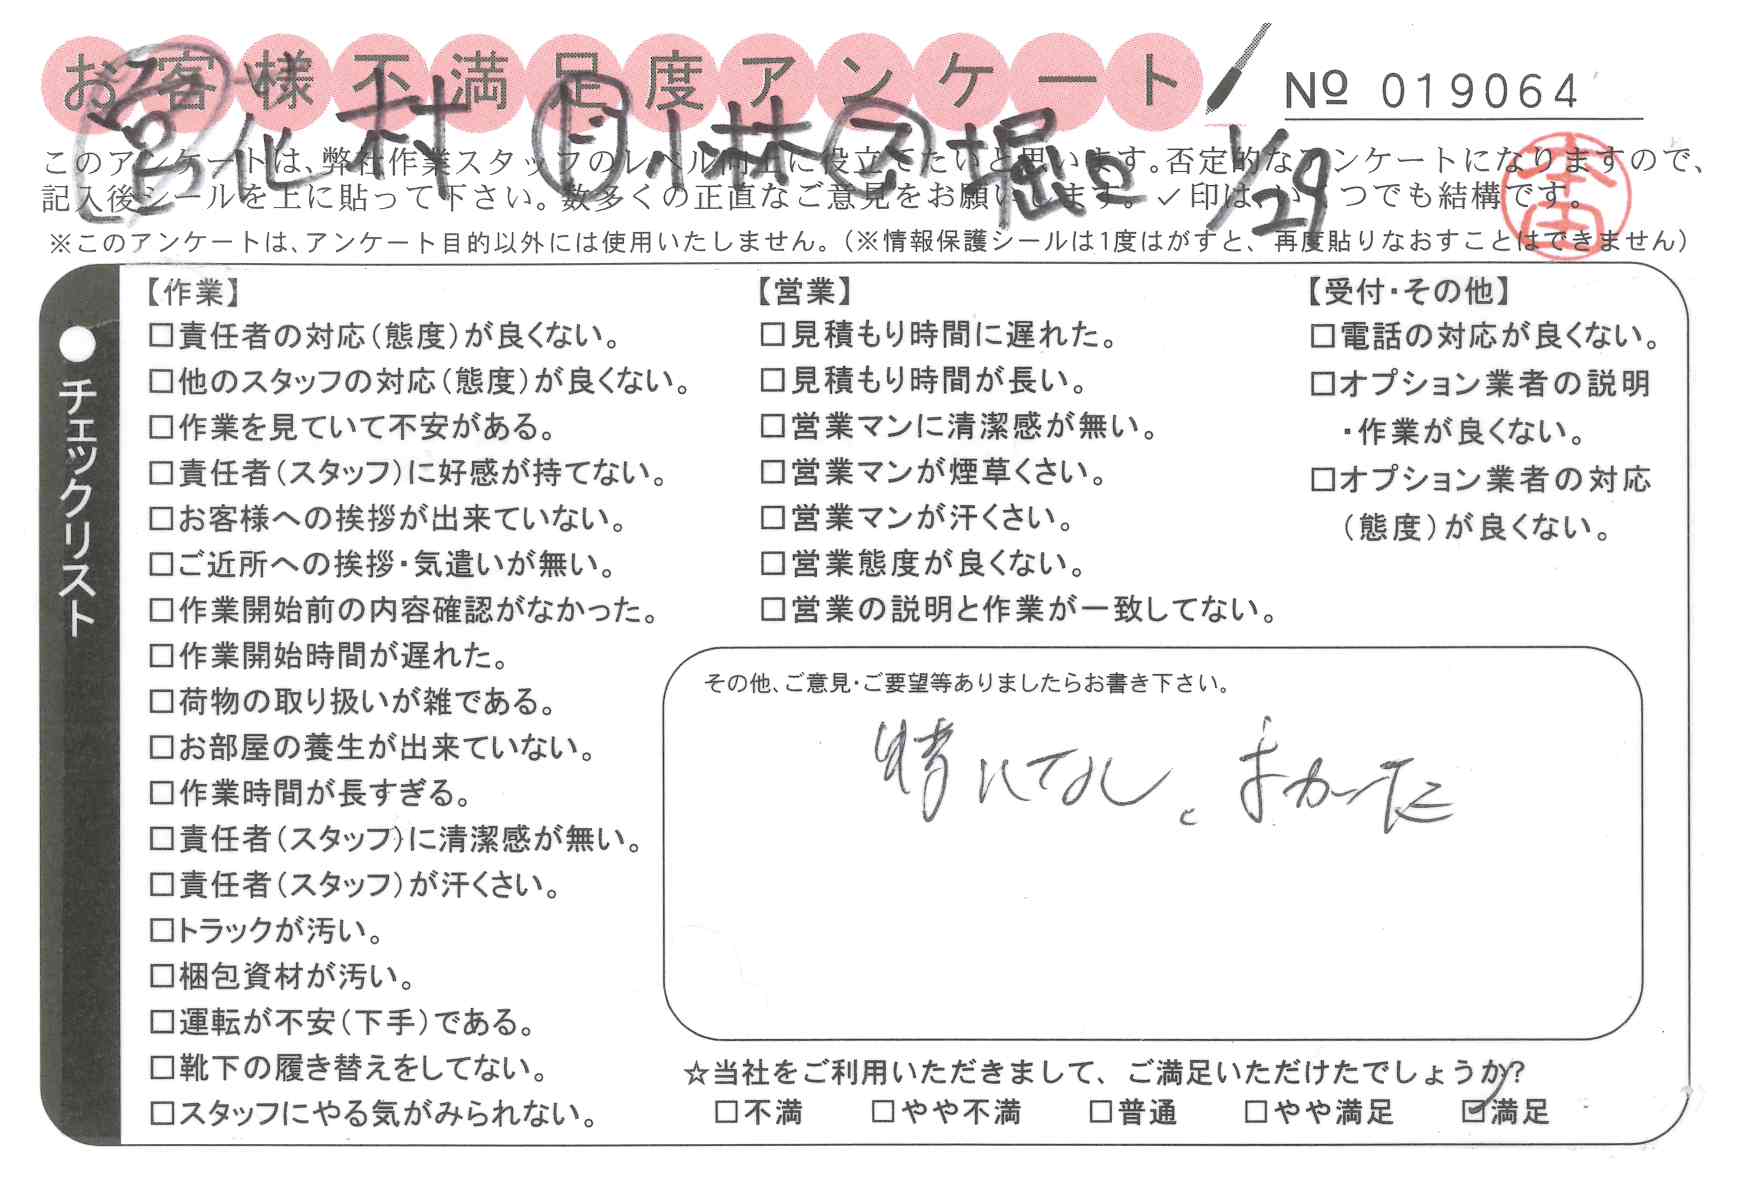 お客様不満足度アンケート
№ 019064
営 北村 ド 小林 ス 堀口 1/29
本田
このアンケートは、弊社作業スタッフのレベル向上に役立てたいと思います。否定的なアンケートになりますので、
記入後シールを上に貼って下さい。数多くの正直なご意見をお願いします。✓印は、いくつでも結構です。
※このアンケートは、アンケート目的以外には使用いたしません。（※情報保護シールは1度はがすと、再度貼りなおすことはできません）
●チェックリスト
【作業】
□責任者の対応（態度）が良くない。
□他のスタッフの対応（態度）が良くない。
□作業を見ていて不安がある。
□責任者（スタッフ）に好感が持てない。
□お客様への挨拶が出来ていない。
□ご近所への挨拶・気遣いが無い。
□作業開始前の内容確認がなかった。
□作業開始時間が遅れた。
□荷物の取り扱いが雑である。
□お部屋の養生が出来ていない。
□作業時間が長すぎる。
□責任者（スタッフ）に清潔感が無い。
□責任者（スタッフ）が汗くさい。
□トラックが汚い。
□梱包資材が汚い。
□運転が不安（下手）である。
□靴下の履き替えをしてない。
□スタッフにやる気がみられない。
【営業】
□見積もり時間に遅れた。
□見積もり時間が長い。
□営業マンに清潔感が無い。
□営業マンが煙草くさい。
□営業マンが汗くさい。
□営業態度が良くない。
□営業の説明と作業が一致してない。
【受付・その他】
□電話の対応が良くない。
□オプション業者の説明
・作業が良くない。
□オプション業者の対応
（態度）が良くない。
その他、ご意見・ご要望等ありましたらお書き下さい。
特になし。よかったです
☆当社をご利用いただきまして、ご満足いただけたでしょうか?
□不満 □やや不満 □普通 □やや満足 ☑満足